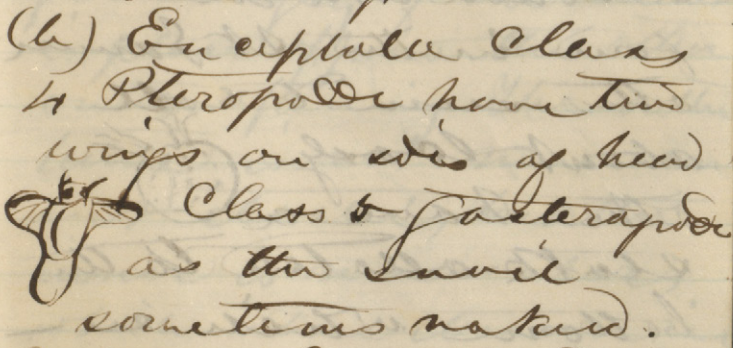 (b) Encephala Class
4 Pteropoda have two
wings on sides of head
Class 5 Gasteropoda
as the snail
sometimes naked.